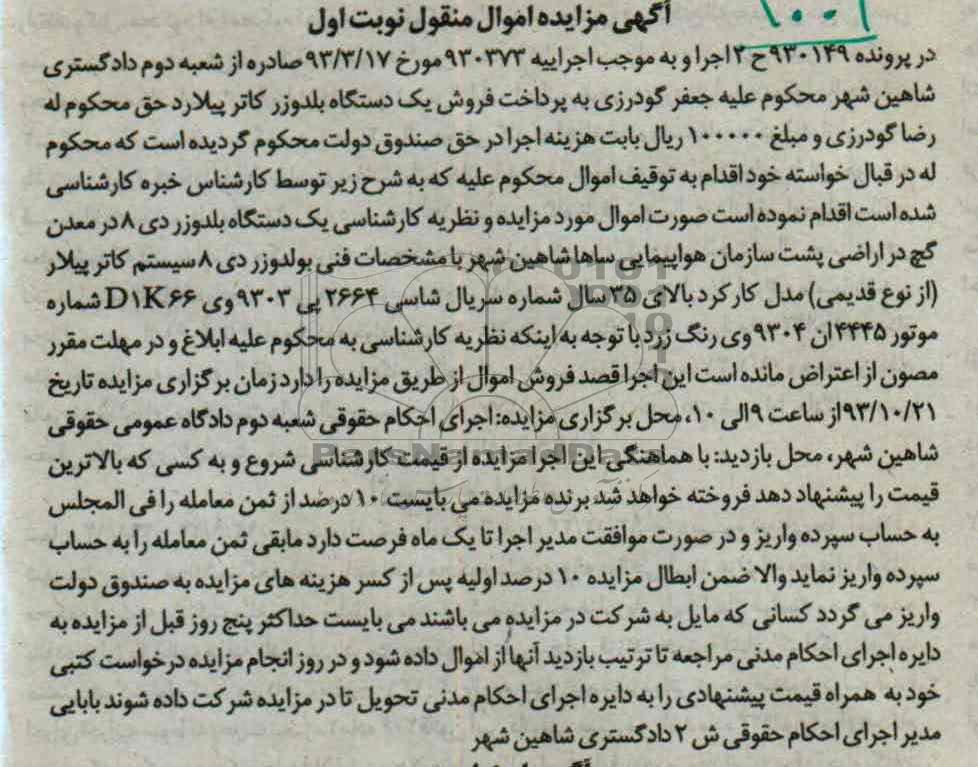 ۱۰۰۱
آگهی مزایده اموال منقول نوبت اول
در پرونده ۹۳۰۱۴۹ح ۲ اجرا و به موجب اجراییه ۹۳۰۳۷۳ مورخ ۹۳/۳/۱۷ صادره از شعبه دوم دادگستری
شاهین شهر محکوم علیه جعفر گودرزی به پرداخت فروش یک دستگاه بلدوزر کاتر پیلارد حق محکوم له
رضا گودرزی و مبلغ ۱۰۰۰۰۰ ریال بابت هزینه اجرا در حق صندوق دولت محکوم گردیده است که محکوم
له در قبال خواسته خود اقدام به توقیف اموال محکوم علیه که به شرح زیر توسط کارشناس خبره کارشناسی
شده است اقدام نموده است صورت اموال مورد مزایده و نظریه کارشناسی یک دستگاه بلدوزر دی ۸ در معدن
گچ در اراضی پشت سازمان هواپیمایی ساها شاهین شهر با مشخصات فنی بولدوزر دی ۸ سیستم کاتر پیلار
(از نوع قدیمی) مدل کارکرد بالای ۳۵ سال شماره سریال شاسی ۲۶۶۴ پی ۹۳۰۳ وی D۱K۶۶ شماره
موتور ۴۴۴۵ان ۹۳۰۴ وی رنگ زرد با توجه به اینکه نظریه کارشناسی به محکوم علیه ابلاغ و در مهلت مقرر
مصون از اعتراض مانده است این اجرا قصد فروش اموال از طریق مزایده را دارد زمان برگزاری مزایده تاریخ
۹۳/۱۰/۲۱ از ساعت ۹الی ۱۰، محل برگزاری مزایده: اجرای احکام حقوقی شعبه دوم دادگاه عمومی حقوقی
شاهین شهر، محل بازدید: با هماهنگی این اجرا مزایده از قیمت کارشناسی شروع و به کسی که بالاترین
قیمت را پیشنهاد دهد فروخته خواهد شد برنده مزایده می بایست ۱۰ درصد از ثمن معامله را فی المجلس
به حساب سپرده واریز و در صورت موافقت مدیر اجرا تا یک ماه فرصت دارد مابقی ثمن معامله را به حساب
سپرده واریز نماید والا ضمن ابطال مزایده ۱۰ درصد اولیه پس از کسر هزینه های مزایده به صندوق دولت
واریز می گردد کسانی که مایل به شرکت در مزایده می باشند می بایست حداکثر پنج روز قبل از مزایده به
دایره اجرای احکام مدنی مراجعه تا ترتیب بازدید آنها از اموال داده شود و در روز انجام مزایده درخواست کتبی
خود به همراه قیمت پیشنهادی را به دایره اجرای احکام مدنی تحویل تا در مزایده شرکت داده شوند بابایی
مدیر اجرای احکام حقوقی ش ۲ دادگستری شاهین شهر